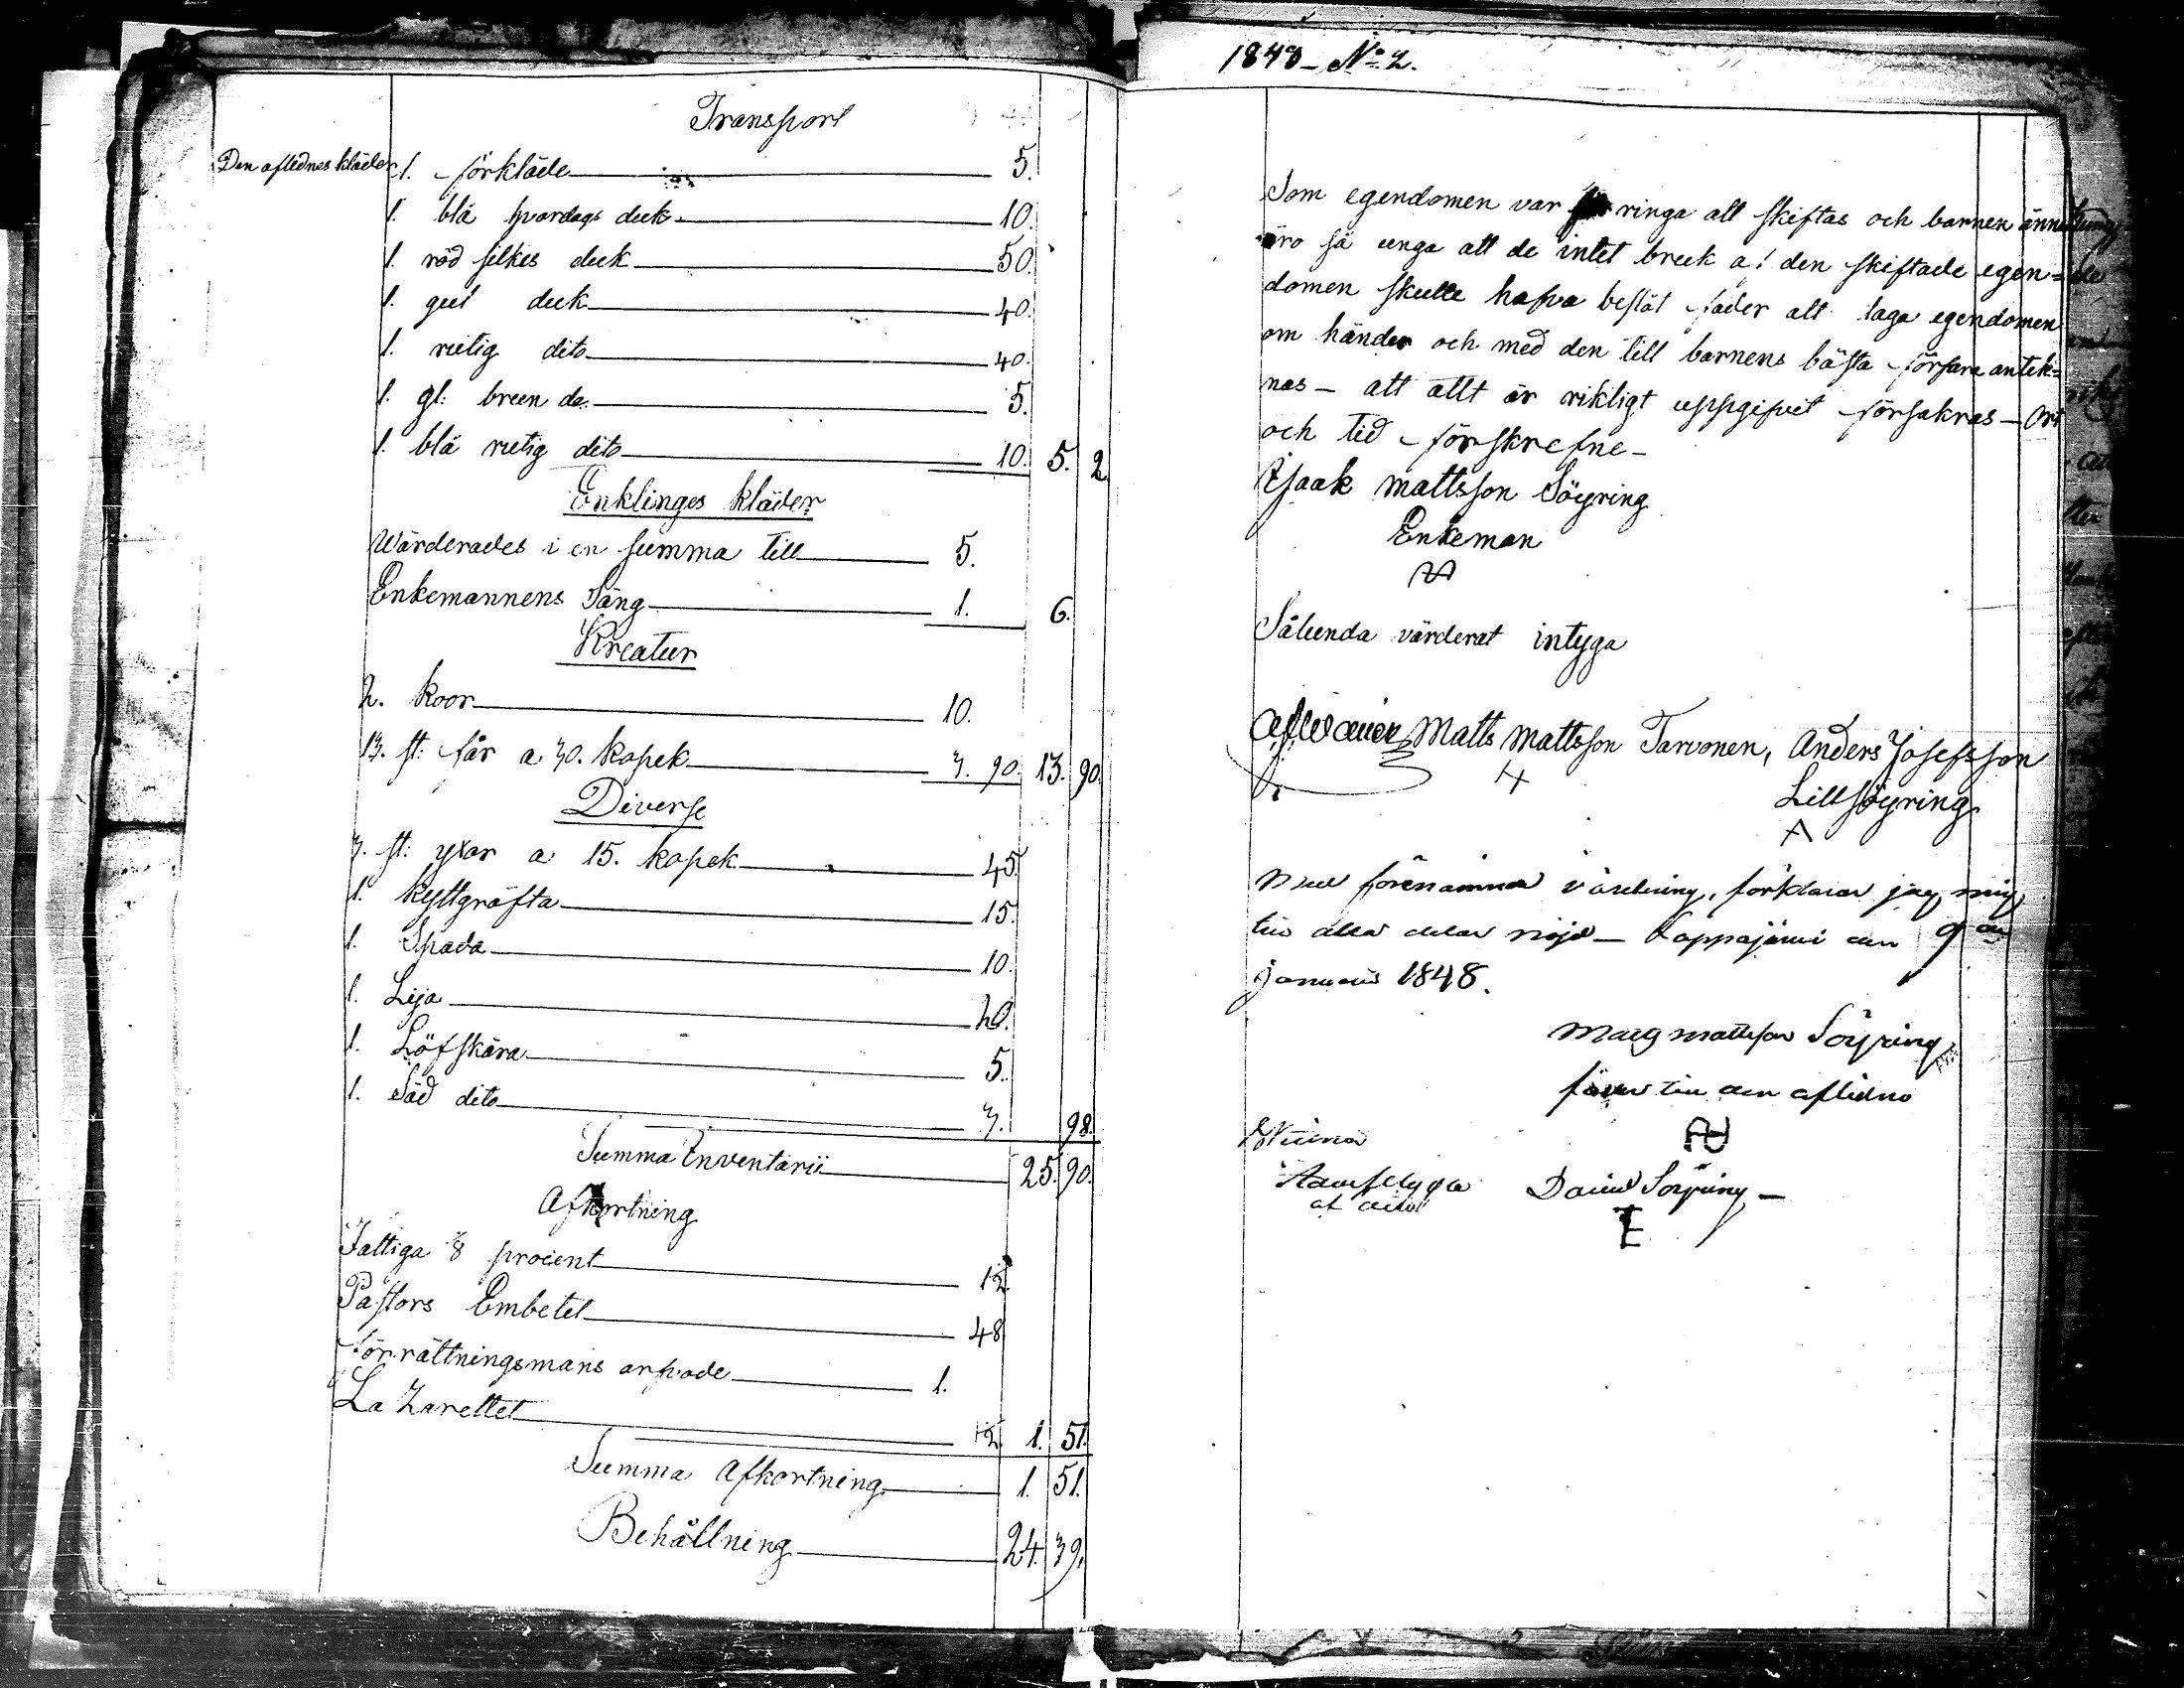 Transport
Den aflednes kläder 1. förkläde 5.
1. blå hvardags duk 10.
1. röd silkes duk 50.
1. gul duk 40.
1. rutig dito 40.
1. gl: brun do. 5.
1. blå rutig dito 10. 5. 2
Enklinges kläder
Wärderades i en summa till 5.
Enkemannens Säng 1. 6.
Kreatur
2. koor 10.
13. st: får a 30. kopek 3. 90. 13. 90.
Diverse
3. st: yxor a 15. kopek 45
1. kyttgräfta 15.
1. Spada 10.
1. Lija 20.
1. Löfskära 5.
1. Säd dito 3. 98.
Summa Inventarii 25. 90.
Afkortning
Fattiga 1/8 procent
Pastors Embetet 48
förrättningsmans arvode 1.
La Zarettet 1. 51.
Summa Afkortning 1. 51.
Behållning 24. 39.
1848 - No 2.
Som egendomen var ringa att skiftas och barnen ännu
äro så unga att de intet bruk af den skiftade egen=
domen skulle hafva beslöt fader att taga egendomen
om händer och med den till barnens bästa förfara antek=
nas - att allt är riktigt uppgifvit försäkras - Ort
och tid förskrefne -
Isaak Mattsson Söyring
Enkeman
Sålunda värderat intyga
Matts Mattsson Tarvonen, Anders Josefsson
Lillsöyring
Med förenämnda värdering, förklarar jag mig
till alla delar nöjd - Lappajärvi den 9de
Januarii 1848.
Mattsson Söyring
fader till den aflidno
Söyring -